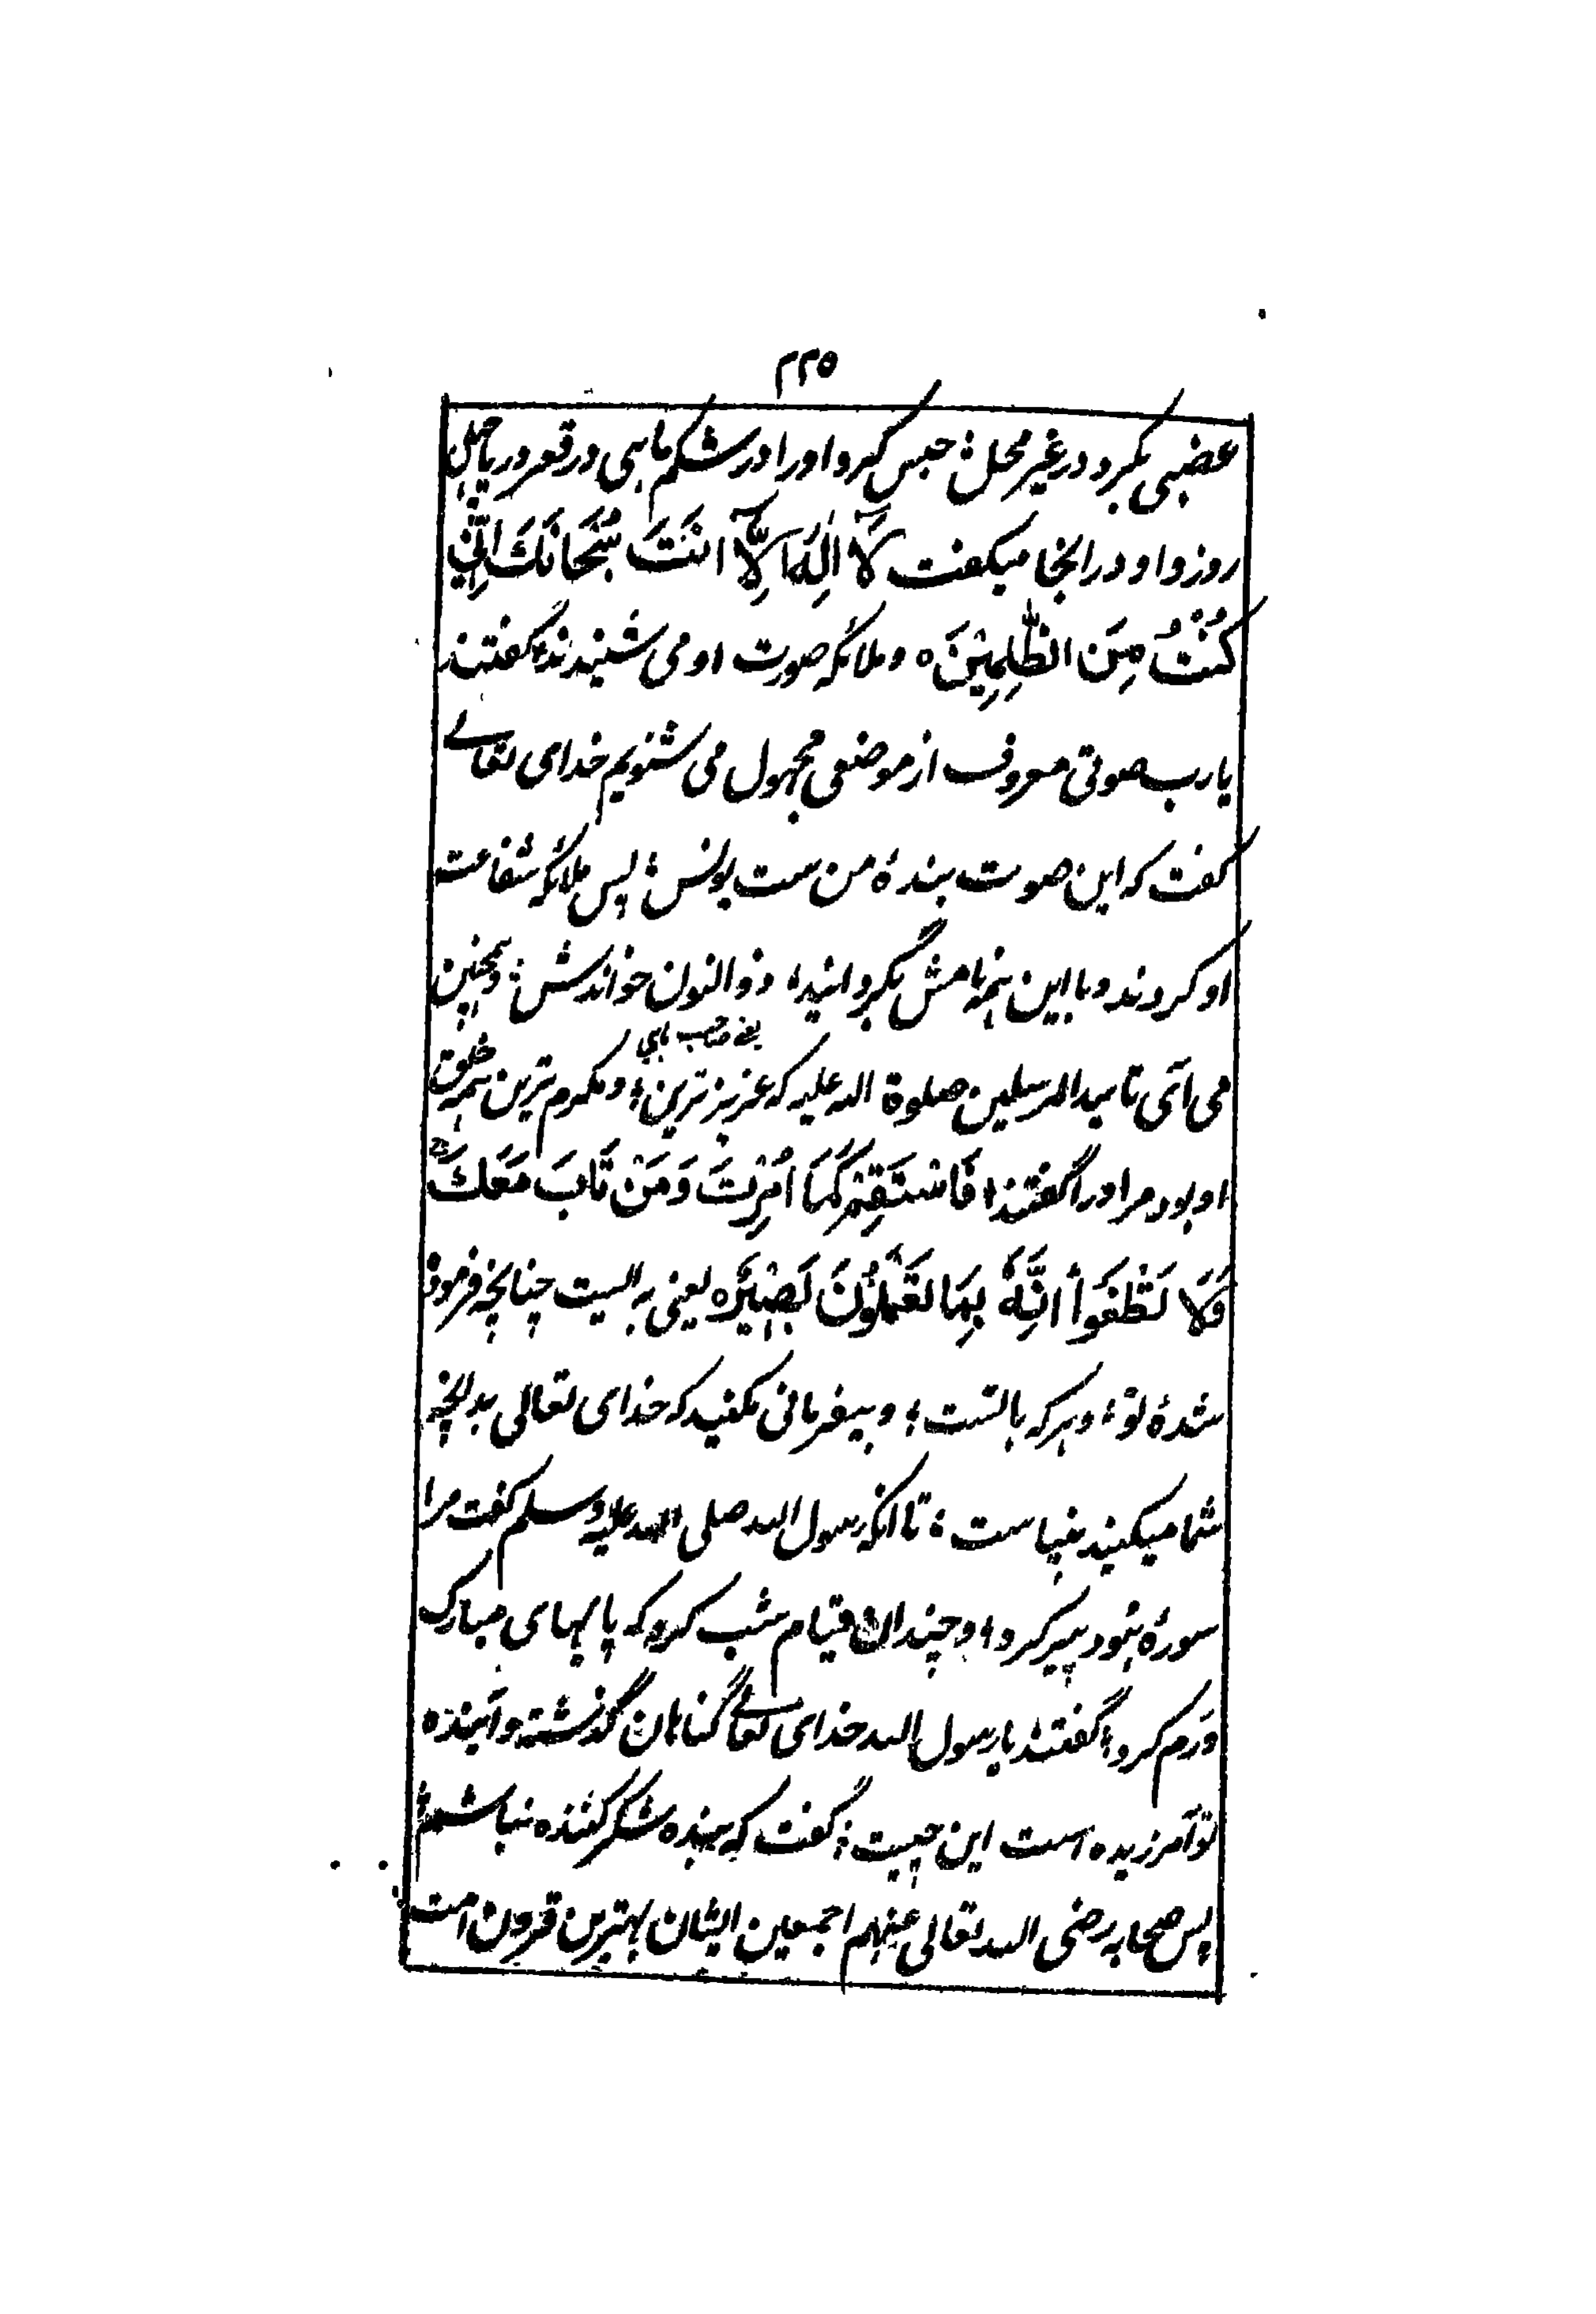 ۲۲۵
غضبی بکرد در غیر محل؛ حبس کرد او را در شکم ماهی در قعر دریا چهل
روز و او در انجا میکفت لَآ اِلٰهَ اِلَّآ اَنْتَ سُبْحَانَكَ اِنِّيْ
كُنْتُ مِنَ الظّٰلِمِيْنَ ه و ملائکه صورت او می شنیدند؛ گفتند
یارب صوتی معروف از موضعی مجهول می شنویم خدای تعالے
کفت که این صوت بندۂ من ست یونس؛ پس ملائکه شفاعت
او کردند و با این همه نامش بگردانید؛ ذوالنون خواندش؛ و همچنین
یعنے صاحب ماہی
می آئی تا سید المرسلین صلوة الله علیه که عزیز ترین؛ و مکرم ترین همه خلق
او بود مر او را گفتند؛ فَاسْتَقِمْ كَمَا اُمِرْتَ وَمَنْ تَابَ مَعَكَ
وَلَا تَطْغَوْا اِنَّهٗ بِمَا تَعْمَلُوْنَ بَصِيْرٌ ه یعنی به ایست چنانچه فرموده
شدۂ تو؛ و هرکه با تست؛ و بیفرمانی مکنید که خدای تعالی بدانچه
شما میکنید بینا ست؛ تا انکه رسول الله صلی الله علیه وسلم کفت مرا
سورۂ هود پیر کرد؛ و چندان قیام شب کرد که پایهای مبارک
ورم کرد؛ گفتند یا رسول الله خدای تعالے گناهان گذشته و آینده
تو آمرزیده است این چیست؛ گفت که بنده شکر کننده نباشم؛
پس صحابه رضی الله تعالی عنهم اجمعین ایشان بهترین قرون امت